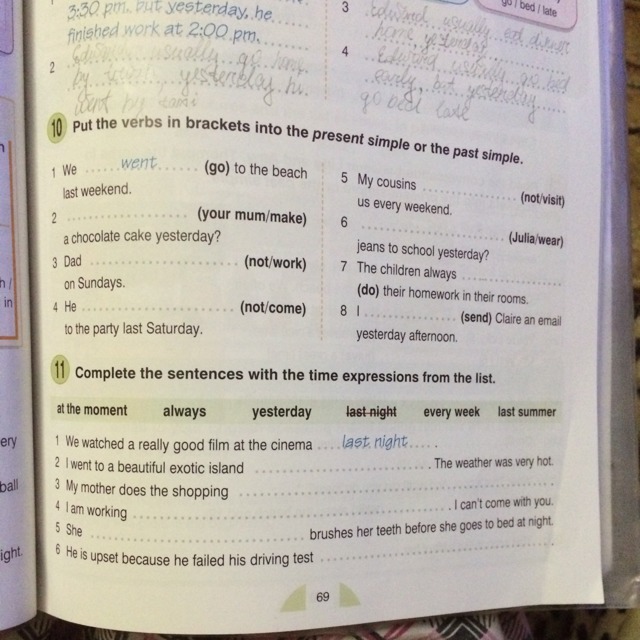 3:30 pm. but yesterday, he
finished work at 2:00 pm.
2
yesterday
3
usually
home yesterday
4 Edward usually go bed
early, but yesterday
go bed late
go / bed / late
10 Put the verbs in brackets into the present simple or the past simple.
1 We ......went...... (go) to the beach
last weekend.
2 ........................ (your mum/make)
a chocolate cake yesterday?
3 Dad ........................ (not/work)
on Sundays.
4 He ........................ (not/come)
to the party last Saturday.
5 My cousins ................ (not/visit)
us every weekend.
6 ........................ (Julia/wear)
jeans to school yesterday?
7 The children always ................
(do) their homework in their rooms.
8 I ................ (send) Claire an email
yesterday afternoon.
11 Complete the sentences with the time expressions from the list.
at the moment always yesterday last night every week last summer
1 We watched a really good film at the cinema ....last night.....
2 I went to a beautiful exotic island ........................ . The weather was very hot.
3 My mother does the shopping ........................
4 I am working ........................ . I can't come with you.
5 She ........................ brushes her teeth before she goes to bed at night.
6 He is upset because he failed his driving test ........................
69
h /
in
ery
ball
ight.